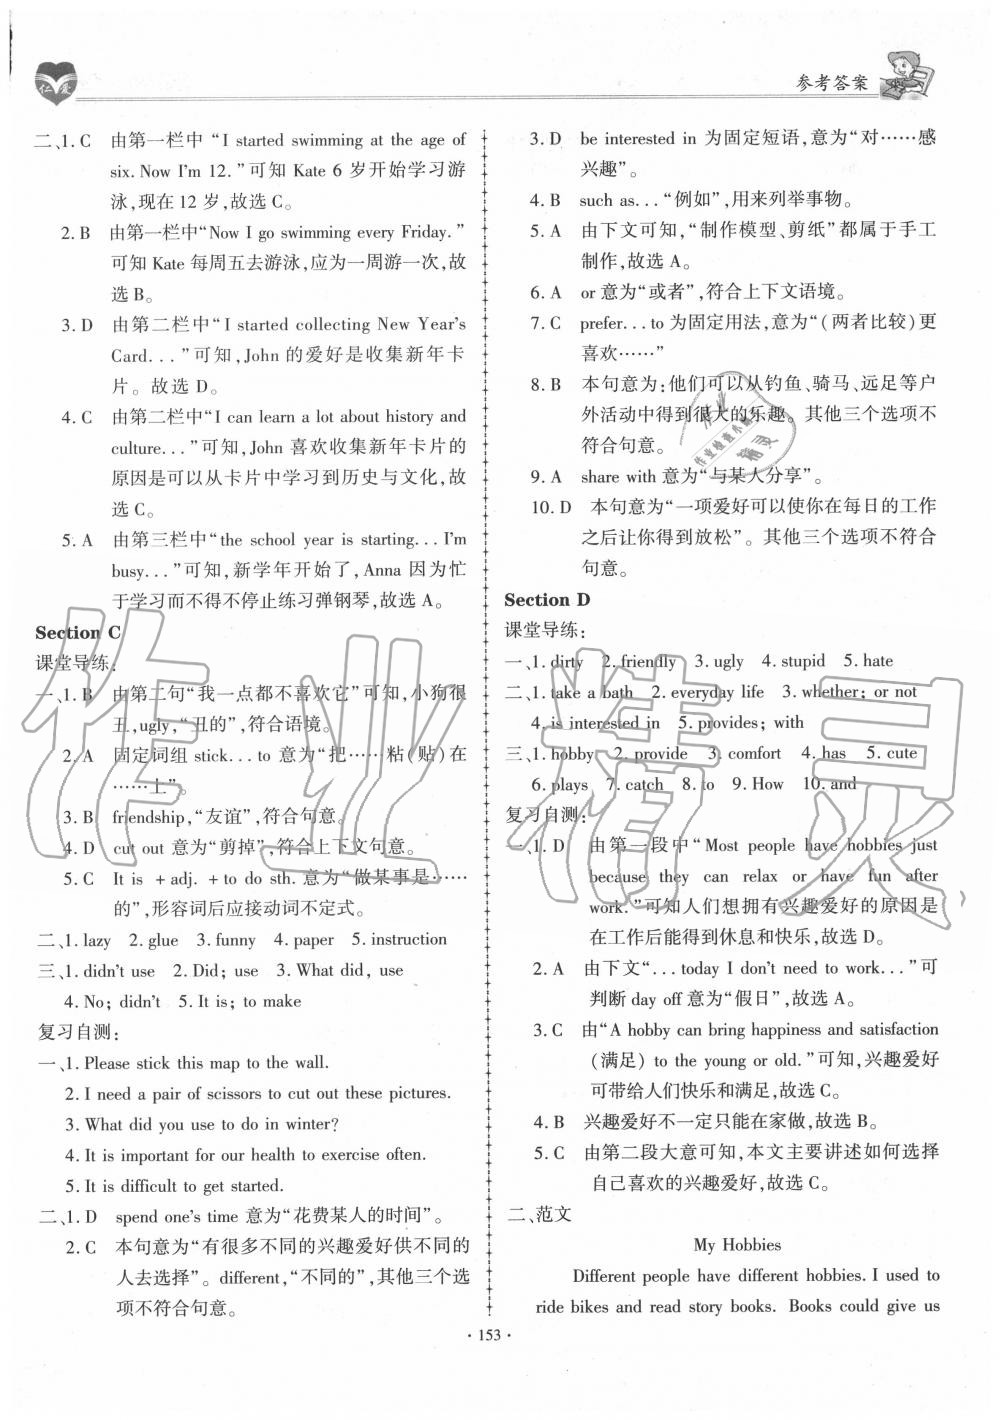 仁爱
参考答案
二、1. C 由第一栏中“I started swimming at the age of
six. Now I'm 12.”可知 Kate 6 岁开始学习游
泳,现在 12 岁,故选 C。
2. B 由第一栏中“Now I go swimming every Friday.”
可知 Kate 每周五去游泳,应为一周游一次,故
选 B。
3. D 由第二栏中“I started collecting New Year's
Card...”可知,John 的爱好是收集新年卡
片。故选 D。
4. C 由第二栏中“I can learn a lot about history and
culture...”可知,John 喜欢收集新年卡片的
原因是可以从卡片中学习到历史与文化,故
选 C。
5. A 由第三栏中“the school year is starting... I'm
busy...”可知,新学年开始了,Anna 因为忙
于学习而不得不停止练习弹钢琴,故选 A。
Section C
课堂导练:
一、1. B 由第二句“我一点都不喜欢它”可知,小狗很
丑,ugly,“丑的”,符合语境。
2. A 固定词组 stick...to 意为“把……粘(贴)在
……上”。
3. B friendship,“友谊”,符合句意。
4. D cut out 意为“剪掉”,符合上下文句意。
5. C It is +adj. +to do sth. 意为“做某事是……
的”,形容词后应接动词不定式。
二、1. lazy 2. glue 3. funny 4. paper 5. instruction
三、1. didn't use 2. Did; use 3. What did, use
4. No; didn't 5. It is; to make
复习自测:
一、1. Please stick this map to the wall.
2. I need a pair of scissors to cut out these pictures.
3. What did you use to do in winter?
4. It is important for our health to exercise often.
5. It is difficult to get started.
二、1. D spend one's time 意为“花费某人的时间”。
2. C 本句意为“有很多不同的兴趣爱好供不同的
人去选择”。different,“不同的”,其他三个选
项不符合句意。
3. D be interested in 为固定短语,意为“对……感
兴趣”。
4. B such as...“例如”,用来列举事物。
5. A 由下文可知,“制作模型、剪纸”都属于手工
制作,故选 A。
6. A or 意为“或者”,符合上下文语境。
7. C prefer...to 为固定用法,意为“(两者比较)更
喜欢……”
8. B 本句意为:他们可以从钓鱼、骑马、远足等户
外活动中得到很大的乐趣。其他三个选项不
符合句意。
9. A share with 意为“与某人分享”。
10. D 本句意为“一项爱好可以使你在每日的工作
之后让你得到放松”。其他三个选项不符合
句意。
Section D
课堂导练:
一、1. dirty 2. friendly 3. ugly 4. stupid 5. hate
二、1. take a bath 2. everyday life 3. whether; or not
4. is interested in 5. provides; with
三、1. hobby 2. provide 3. comfort 4. has 5. cute
6. plays 7. catch 8. to 9. How 10. and
复习自测:
一、1. D 由第一段中“Most people have hobbies just
because they can relax or have fun after
work.”可知人们想拥有兴趣爱好的原因是
在工作后能得到休息和快乐,故选 D。
2. A 由下文“...today I don't need to work...”可
判断 day off 意为“假日”,故选 A。
3. C 由“A hobby can bring happiness and satisfaction
(满足) to the young or old.”可知,兴趣爱好
可带给人们快乐和满足,故选 C。
4. B 兴趣爱好不一定只能在家做,故选 B。
5. C 由第二段大意可知,本文主要讲述如何选择
自己喜欢的兴趣爱好,故选 C。
二、范文
My Hobbies
Different people have different hobbies. I used to
ride bikes and read story books. Books could give us
· 153 ·
作业精灵